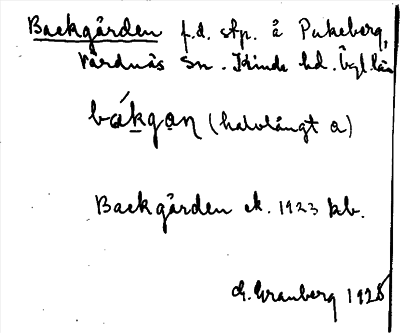 Backgården f.d. stp. å Pukeberg,
Vårdnäs sn. Kinda hd. Ögl. län
bákgạn (halvlångt a)
Backgården ek. 1923 kb.
G. Granberg 1928